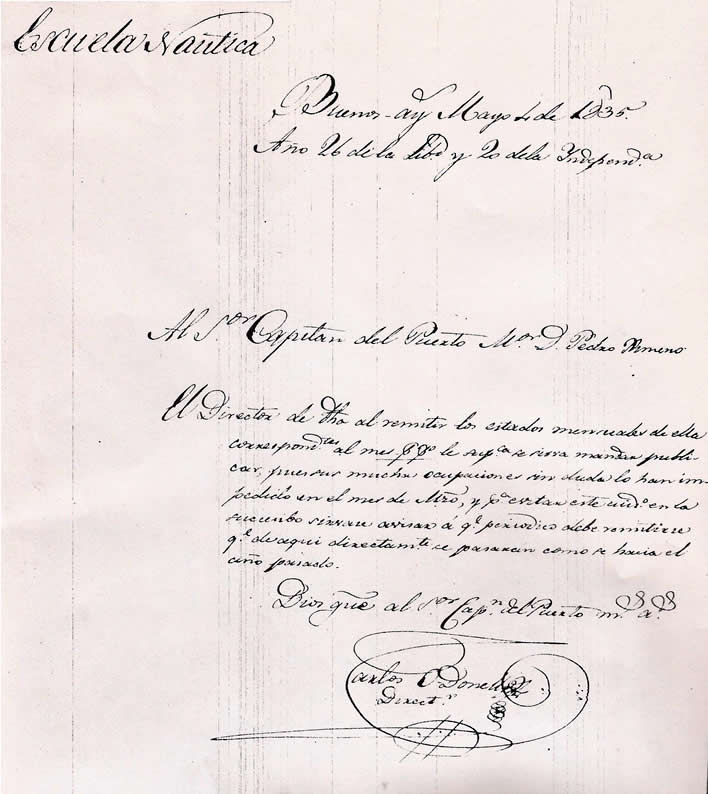 Escuela Nautica
Buenos-ay.s Mayo 4 de 1835.
Año 26 de la Lib.d y 20 de la Independ.a
Al S.or Capitan del Puerto M.or D. Pedro Ximeno
El Director de dha al remitir los estados mensuales de ella
correspond.tes al mes pp.o le sup.ca se sirva mandar publi-
car, pues sus muchas ocupaciones sin duda lo han im-
pedido en el mes de Mzo, y p.a evitar este en la
sucesibo sirvase avisar á q.e periodico debe remitirse
q.e de aqui directam.te se pasaran como se hacia el
año pasado.
Dios gue al S.or Cap.n del Puerto m.s a.s
Carlos O'Donell
Direct.r